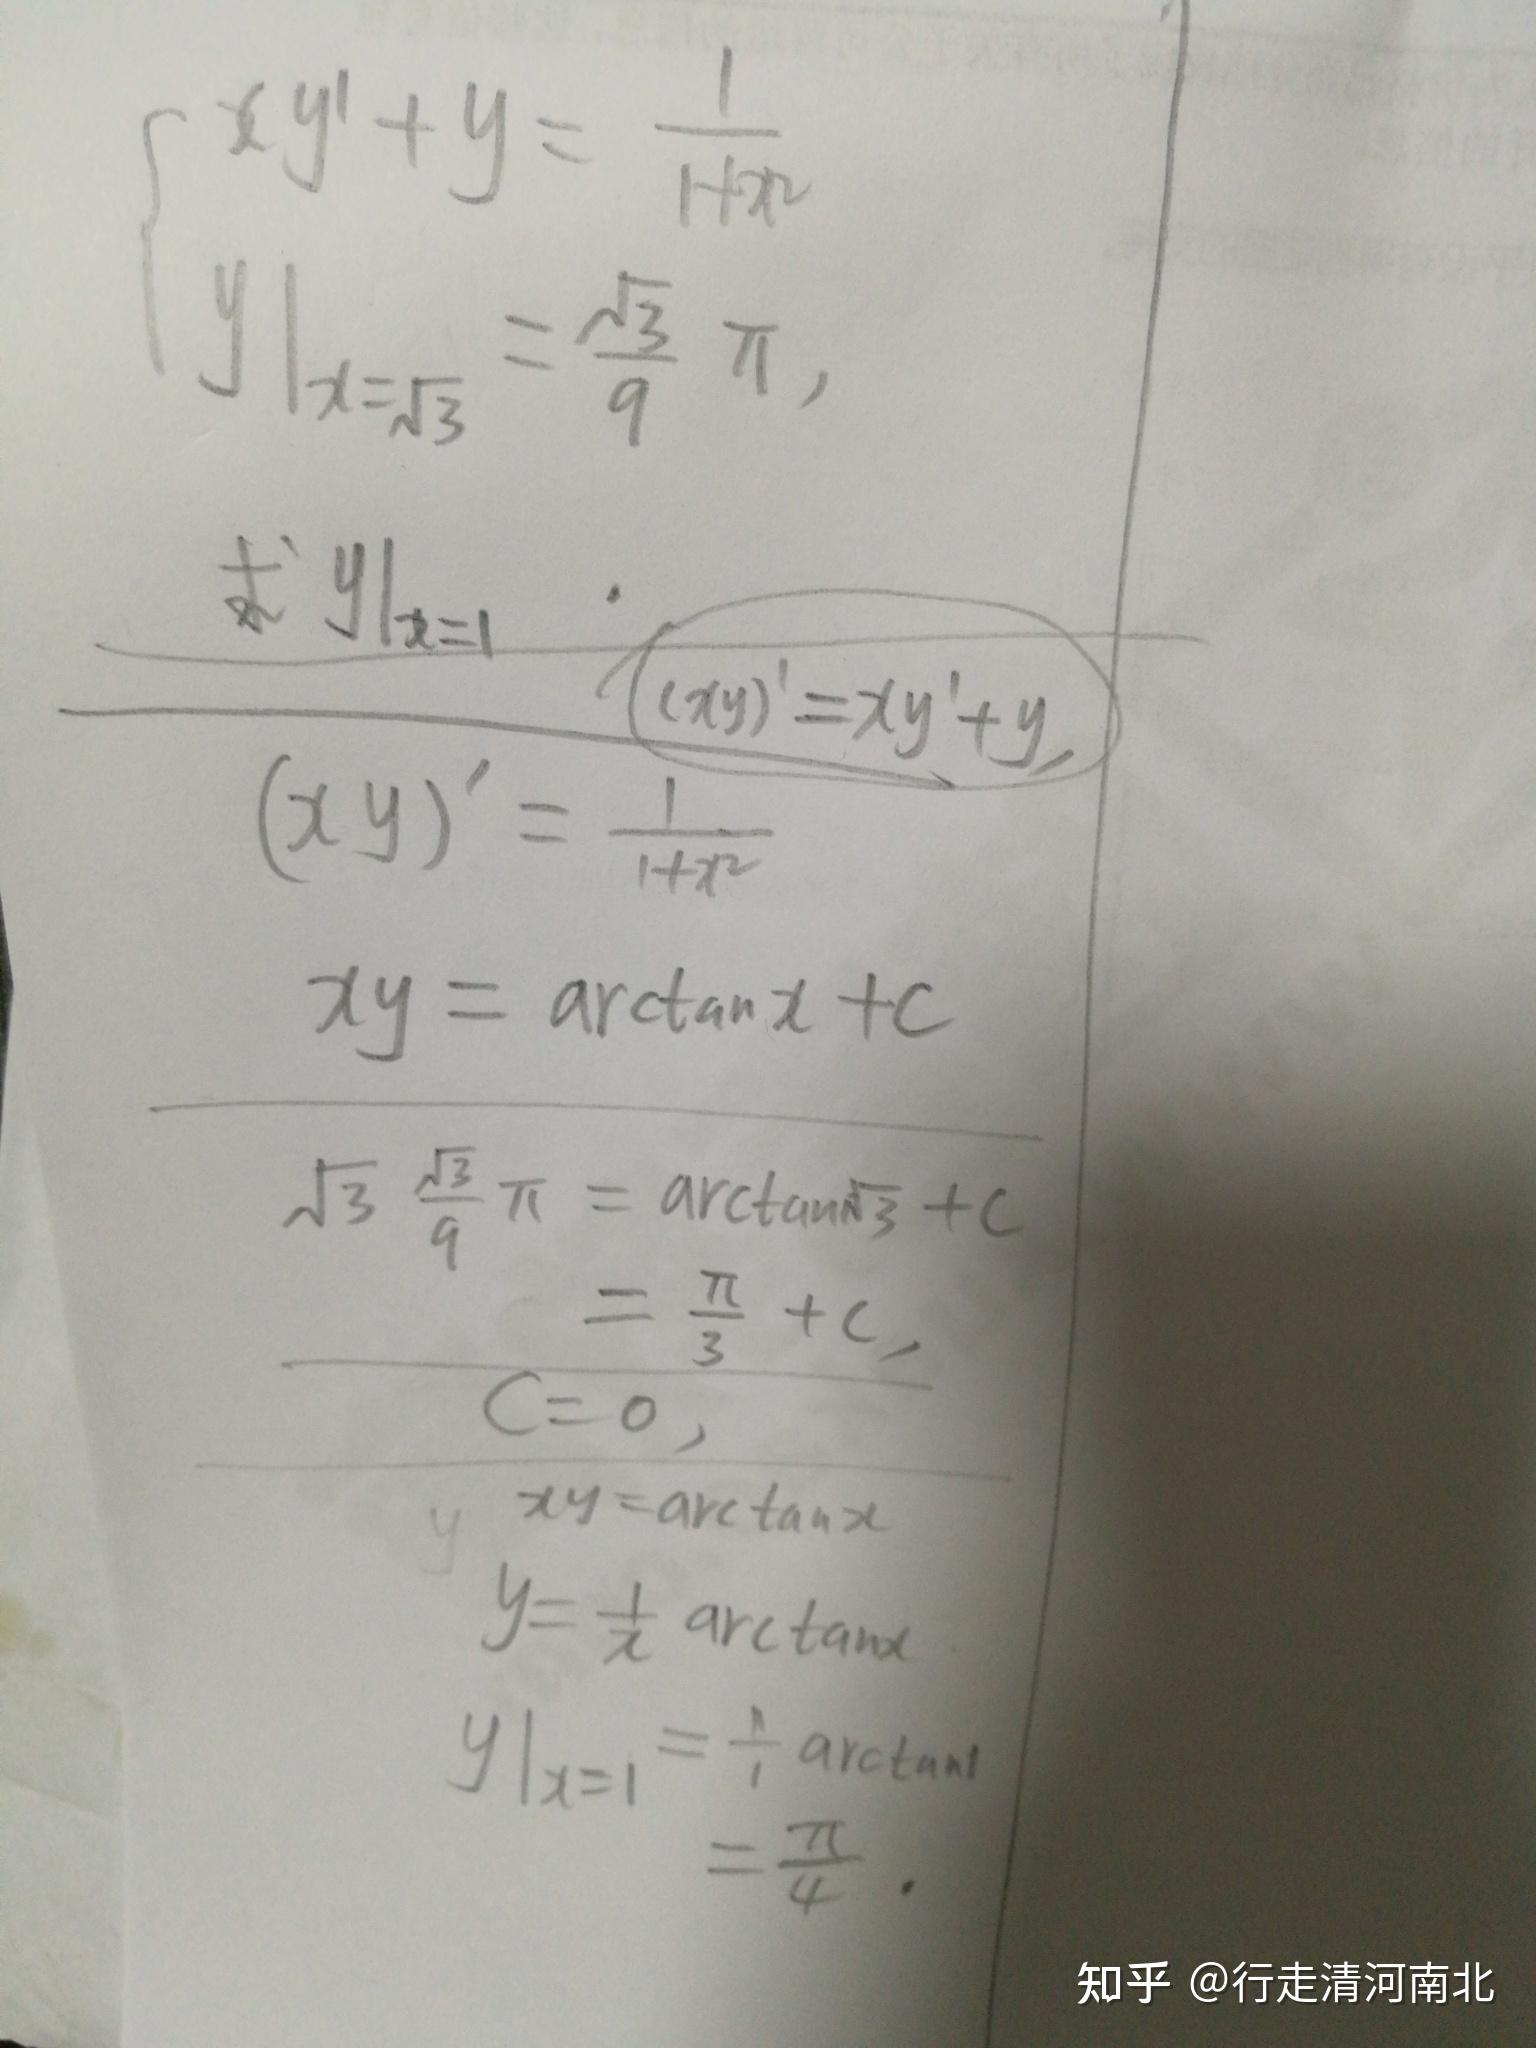 xy' + y = 1/(1+x²)
y|x=√3 = √3/9 π,
求 y|x=1 .
(xy)' = xy' + y,
(xy)' = 1/(1+x²)
xy = arctanx + C
√3 √3/9 π = arctan√3 + C
= π/3 + C,
C = 0,
xy = arctanx
y
y = 1/x arctanx
y|x=1 = 1/1 arctan1
= π/4 .
知乎 @行走清河南北